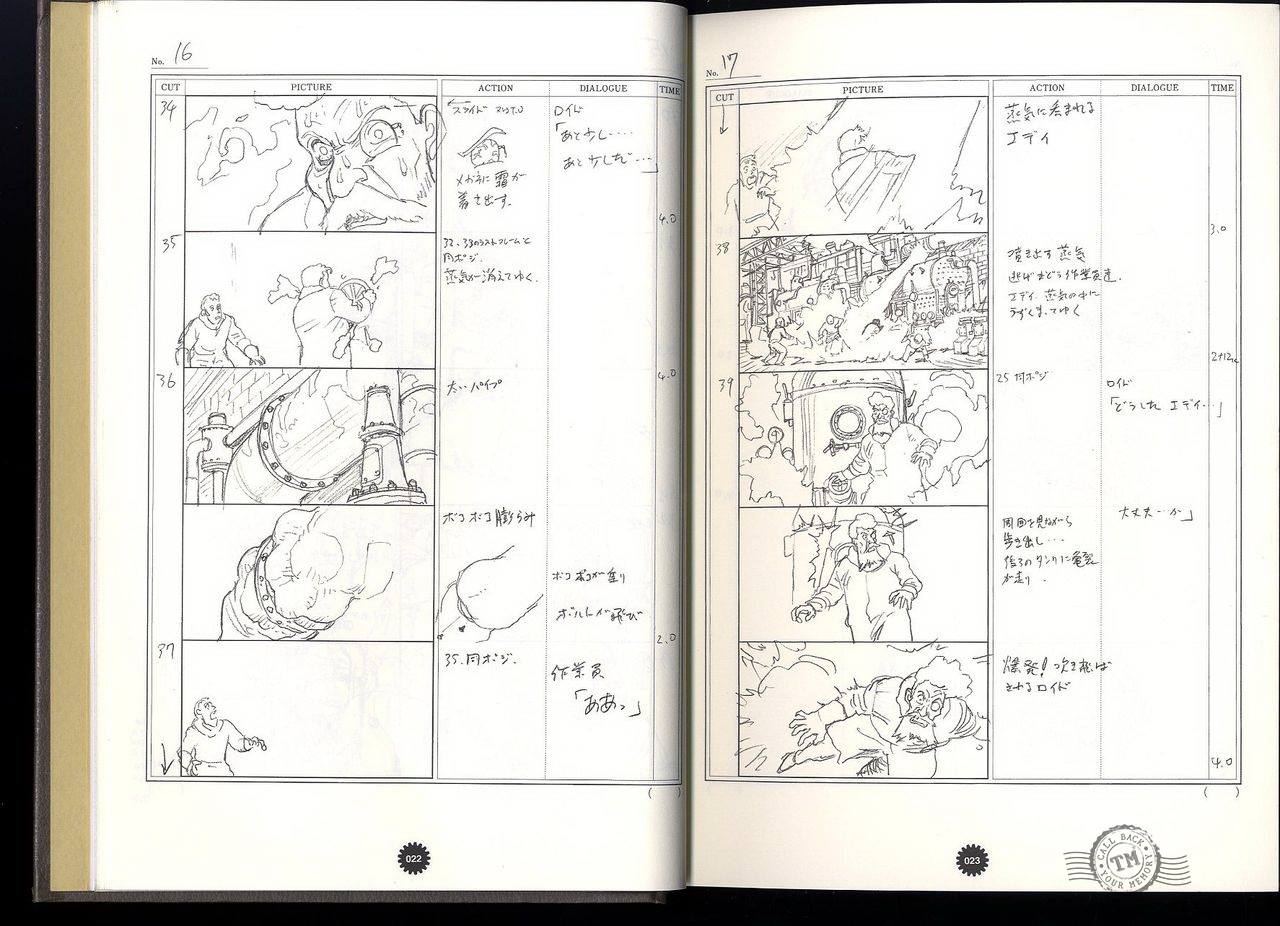 No. 16
CUT PICTURE ACTION DIALOGUE TIME
34
スライド
ロイド
「あと少し‥‥
あと少しだ‥‥」
メガネに霜が
着き出す.
4.0
35
32、33のラストフレームと
同ポジ.
蒸気が消えてゆく.
4.0
36
太いパイプ
ボコボコ膨らみ
ボコボコが
ボルトが飛び
2.0
37
35.同ポジ.
作業員
「ああっ」
( )
022
No. 17
CUT PICTURE ACTION DIALOGUE TIME
蒸気に呑まれる
エディ
3.0
38
噴き出す蒸気
逃げまどう作業員達.
エディ蒸気の中に
うずくまってゆく
2+12
39
25同ポジ
ロイド
「どうした エディ‥」
大丈夫‥か」
周囲を見ながら
歩き出し‥‥
後ろのタンクに亀裂
が走り.
爆発!吹き飛ば
されるロイド
4.0
( )
023
CALL BACK
TM
YOUR MEMORY